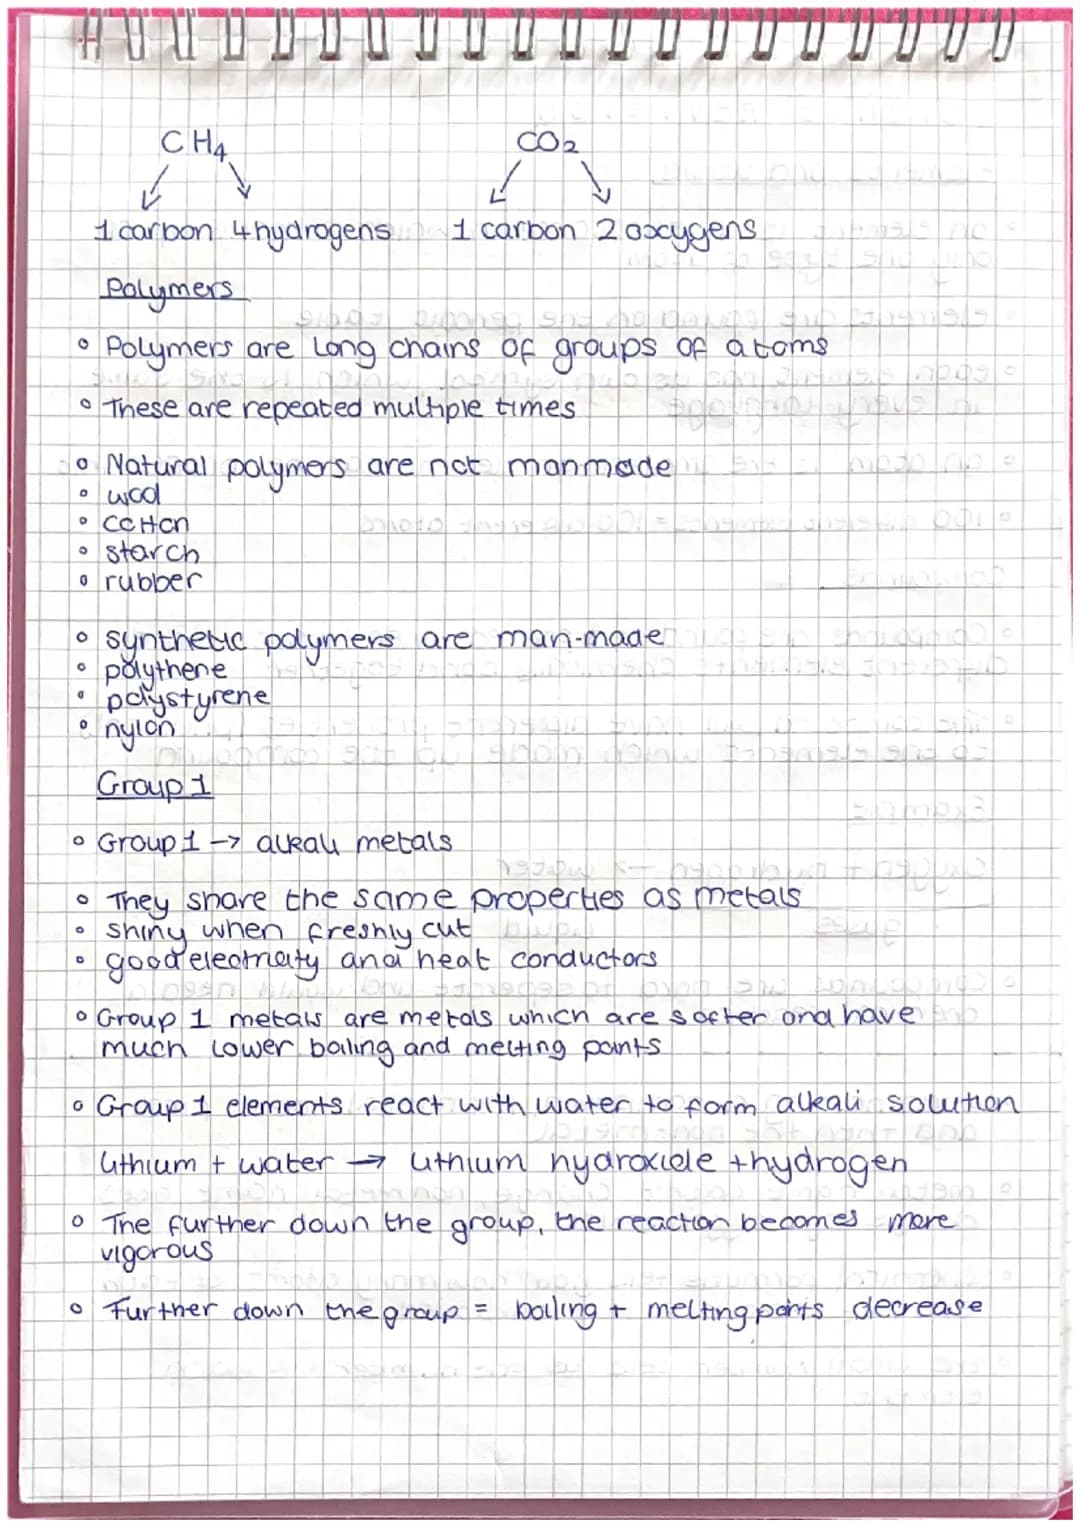 CH4 CO2
1 carbon 4 hydrogens 1 carbon 2 oxygens
Polymers
° Polymers are long chains of groups of atoms
° These are repeated multiple times
° Natural polymers are not manmade
° wool
° cotton
° starch
° rubber
° synthetic polymers are man-made
° polythene
° polystyrene
° nylon
Group 1
° Group 1 → alkali metals
° They share the same properties as metals
° shiny when freshly cut
° good electricity and heat conductors
° Group 1 metals are metals which are softer and have
much lower boiling and melting points
° Group 1 elements react with water to form alkali solution
Lithium + water → Lithium hydroxide + hydrogen
° The further down the group, the reaction becomes more
vigorous
° Further down the group = boiling + melting points decrease